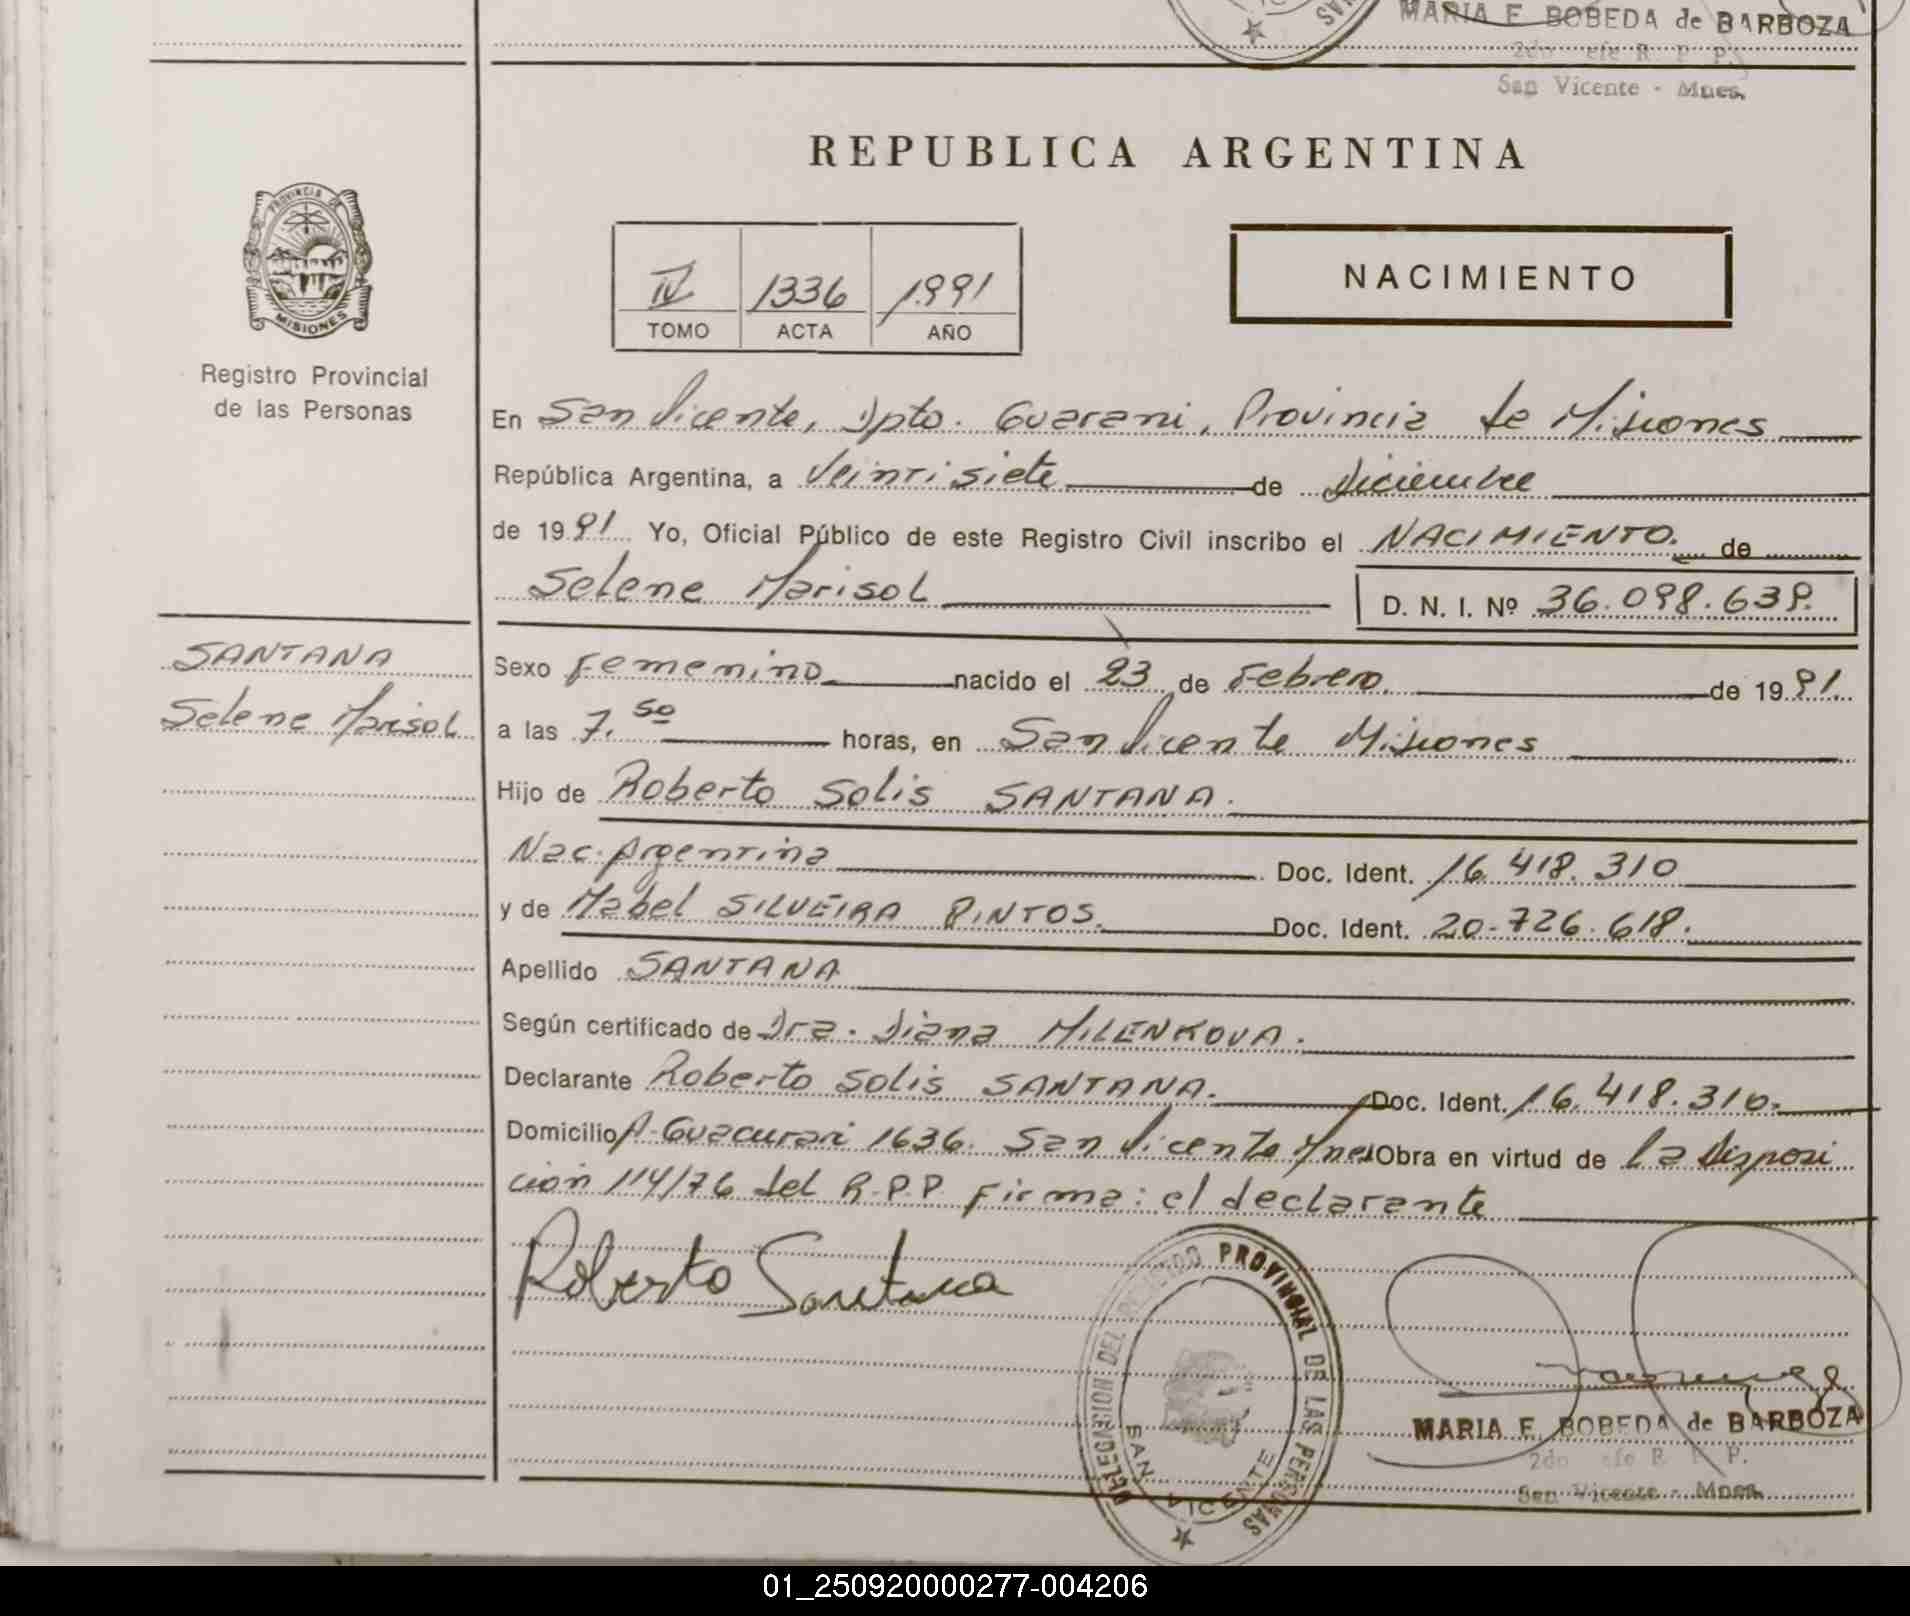 MARIA E. BOBEDA de BARBOZA
2do R. P. P.
San Vicente - Mnes.
REPUBLICA ARGENTINA
PROVINCIA DE
MISIONES
Registro Provincial
de las Personas
IV 1336 1991
TOMO ACTA AÑO
NACIMIENTO
En San Vicente, Dpto. Guarani, Provincia de Misiones
República Argentina, a Veintisiete de Diciembre
de 1991 Yo, Oficial Público de este Registro Civil inscribo el NACIMIENTO. de
Selene Marisol D. N. I. Nº 36.098.639.
SANTANA
Selene Marisol
Sexo Femenino nacido el 23 de Febrero. de 1991.
a las 7.50 horas, en San Vicente Misiones
Hijo de Roberto Solis SANTANA.
Nac. Argentina Doc. Ident. 16.418.310
y de Mabel SILVEIRA PINTOS. Doc. Ident. 20.726.618.
Apellido SANTANA
Según certificado de Dra. Diana MILENKOVA.
Declarante Roberto Solis SANTANA. Doc. Ident. 16.418.310.
Domicilio A. Guacurari 1636. San Vicente Mnes Obra en virtud de la Disposi
ción 114/76 del R.P.P. Firma: el declarante
Roberto Santana
DELEGACION DEL REGISTRO PROVINCIAL DE LAS PERSONAS
SAN VICENTE
MARIA E. BOBEDA de BARBOZA
2do R. P. P.
San Vicente - Mnes.
01_250920000277-004206